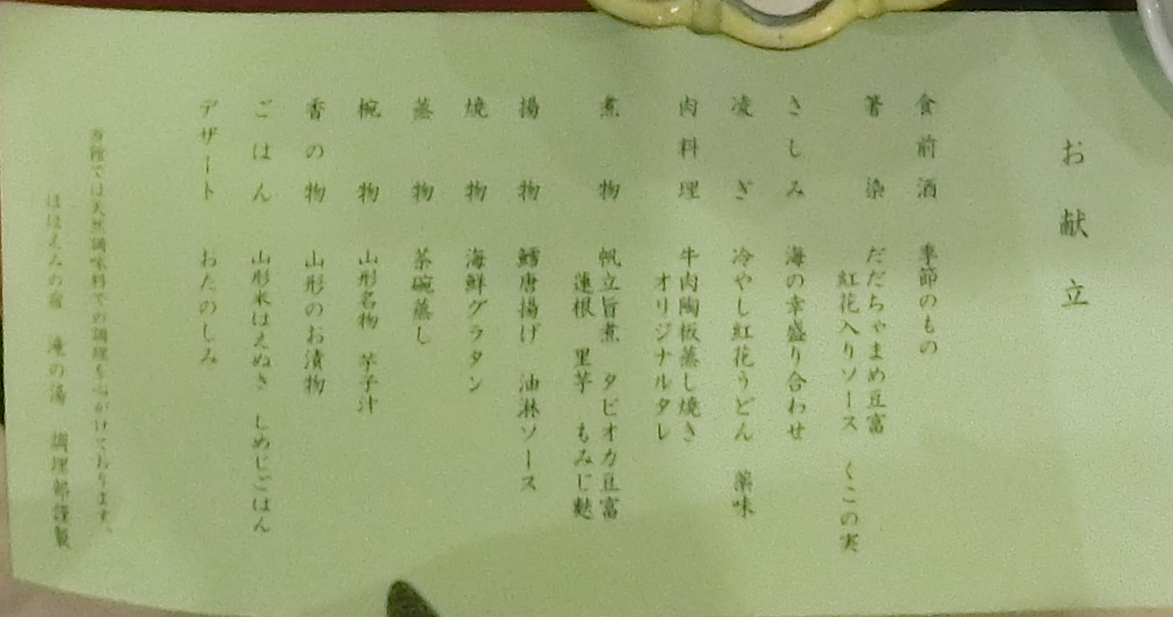 お献立
食前酒 季節のもの
箸染 だだちゃまめ豆富
紅花入りソース くこの実
さしみ 海の幸盛り合わせ
凌ぎ 冷やし紅花うどん 薬味
肉料理 牛肉陶板蒸し焼き
オリジナルタレ
煮物 帆立旨煮 タピオカ豆富
蓮根 里芋 もみじ麩
揚物 鱈唐揚げ 油淋ソース
焼物 海鮮グラタン
蒸物 茶碗蒸し
椀物 山形名物 芋子汁
香の物 山形のお漬物
ごはん 山形米はえぬき しめじごはん
デザート おたのしみ
当館では天然調味料での調理を心がけております。
ほほえみの宿 滝の湯 調理部謹製